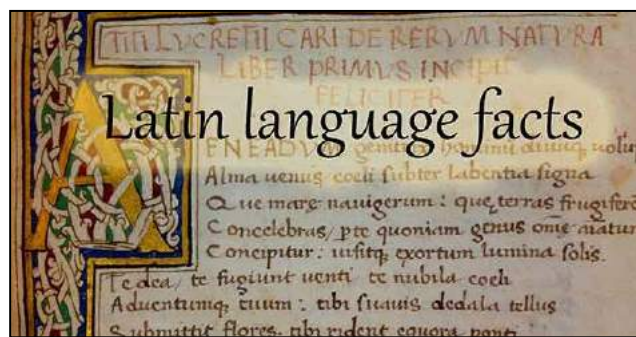 TITI LVCRETII CARI DE RERVM NATVRA
LIBER PRIMVS INCIPIT
FELICITER
Latin language facts
AENEADVM genitrix hominum diuumq uolu
Alma uenus coeli subter labentia signa
Que mare nauigerum: quę terras frugifere
Concelebras, pte quoniam genus ome aiatum
Concipitur: uisitq exortum lumina solis.
Te dea, te fugiunt uenti te nubila coeli
Aduentumq tuum: tibi suauis dedala tellus
Submittit flores, tibi rident equora ponti